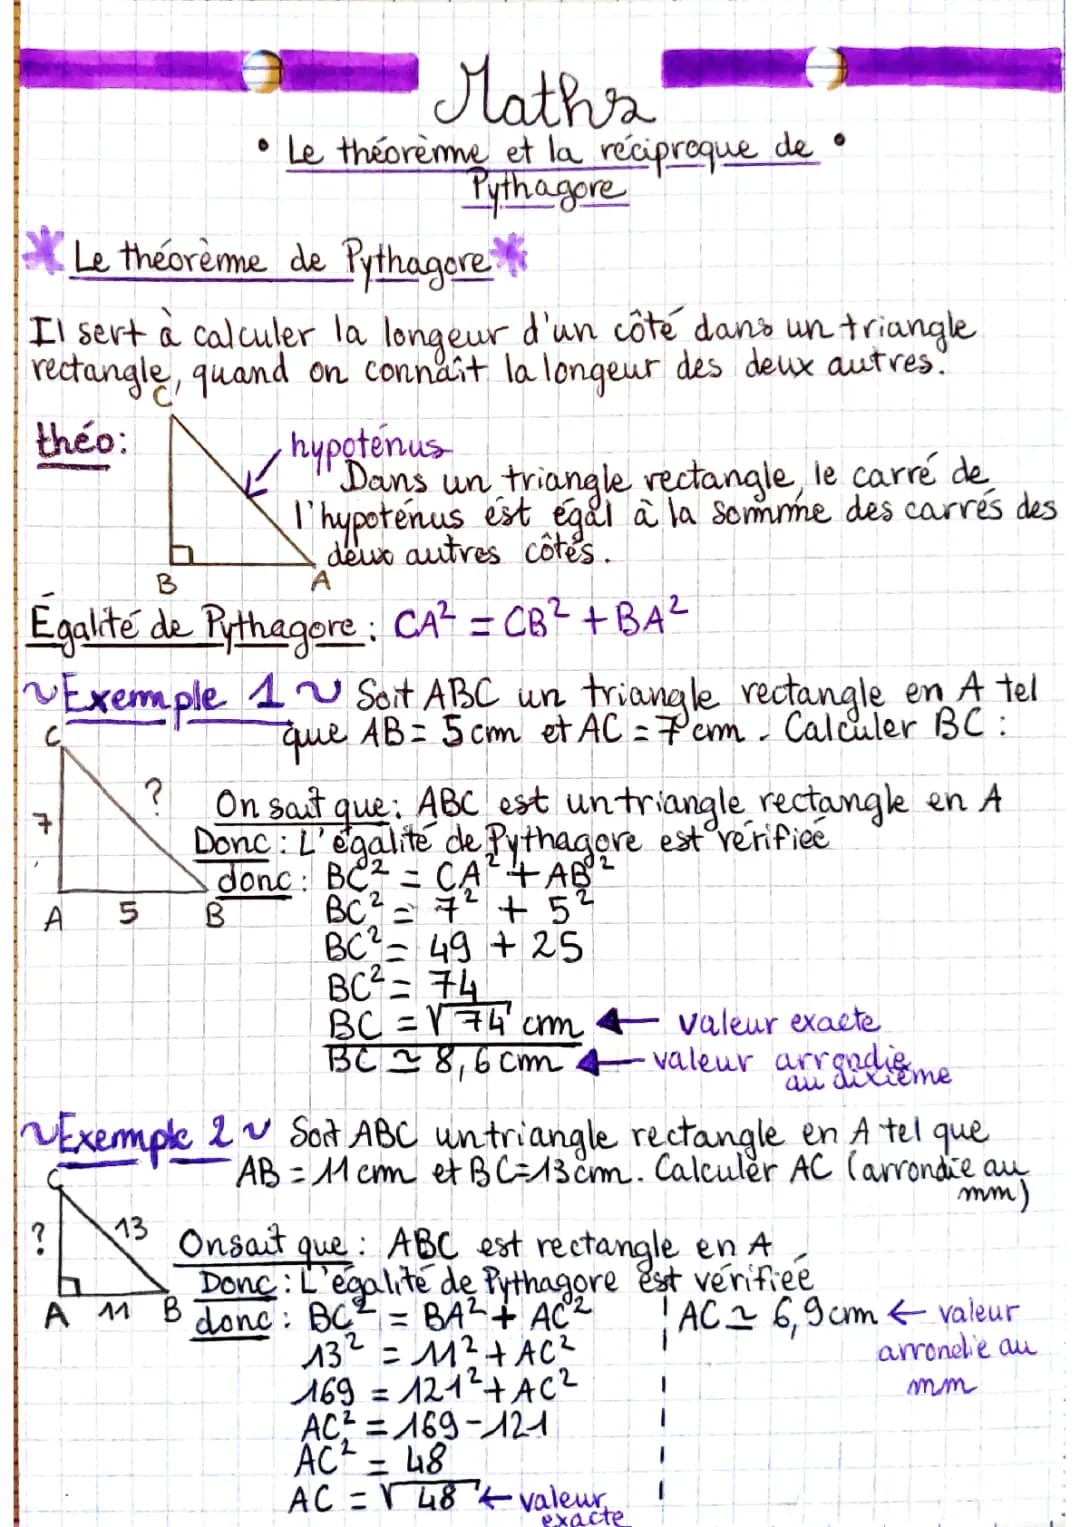 Maths
• Le théorème et la réciproque de •
Pythagore
Le théorème de Pythagore
Il sert à calculer la longeur d'un côté dans un triangle
rectangle, quand on connaît la longeur des deux autres.
théo:
C
hypoténus
Dans un triangle rectangle, le carré de
l'hypoténus est égal à la somme des carrés des
deux autres côtés.
B
A
Égalité de Pythagore : CA² = CB² + BA²
~Exemple 1~ Soit ABC un triangle rectangle en A tel
que AB = 5 cm et AC = 7 cm. Calculer BC :
C
?
7
On sait que: ABC est un triangle rectangle en A
Donc : L'égalité de Pythagore est vérifiée
donc : BC² = CA² + AB²
A 5 B
BC² = 7² + 5²
BC² = 49 + 25
BC² = 74
BC = √74 cm ← valeur exacte
BC ≃ 8,6 cm ← valeur arrondie
au dixième
~Exemple 2~ Soit ABC un triangle rectangle en A tel que
AB = 11 cm et BC=13 cm. Calculer AC (arrondie au
mm)
C
? 13
On sait que : ABC est rectangle en A
Donc : L'égalité de Pythagore est vérifiée
A 11 B
donc : BC² = BA² + AC²
13² = 11² + AC²
169 = 121² + AC²
AC² = 169 - 121
AC² = 48
AC = √48 ← valeur
exacte
AC ≃ 6,9 cm ← valeur
arrondie au
mm